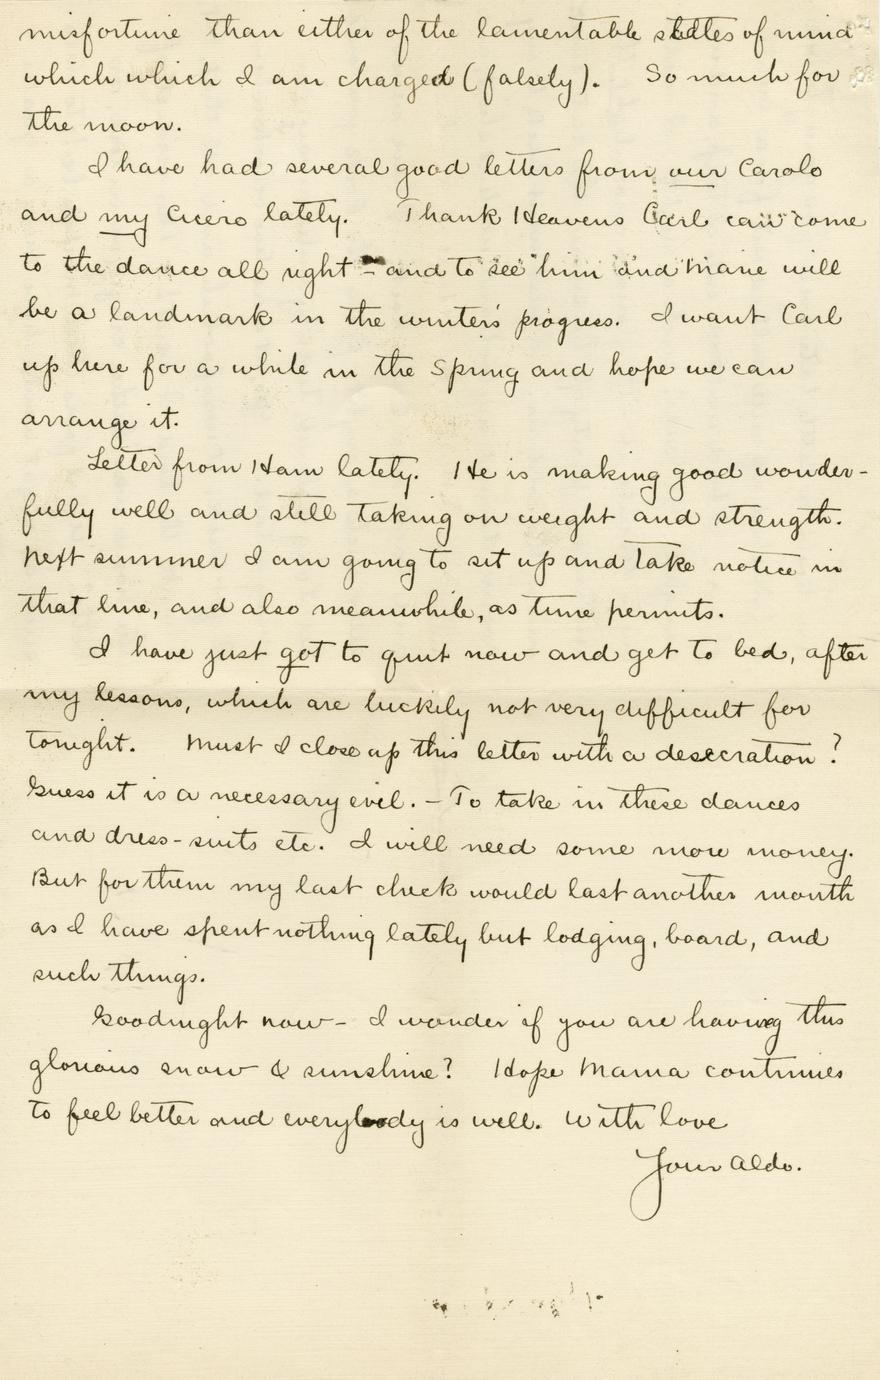 misfortune than either of the lamentable states of mind
which which I am charged (falsely). So much for
the moon.
I have had several good letters from our Carolo
and my Cicero lately. Thank Heavens Carl can come
to the dance all right - and to see him and Marie will
be a landmark in the winter's progress. I want Carl
up here for a while in the Spring and hope we can
arrange it.
Letter from Ham lately. He is making good wonder-
fully well and still taking on weight and strength.
Next summer I am going to sit up and take notice in
that line, and also meanwhile, as time permits.
I have just got to quit now and get to bed, after
my lessons, which are luckily not very difficult for
tonight. Must I close up this letter with a desecration?
Guess it is a necessary evil. - To take in these dances
and dress-suits etc. I will need some more money.
But for them my last check would last another month
as I have spent nothing lately but lodging, board, and
such things.
Goodnight now - I wonder if you are having this
glorious snow & sunshine? Hope Mama continues
to feel better and everybody is well. With love
Your Aldo.